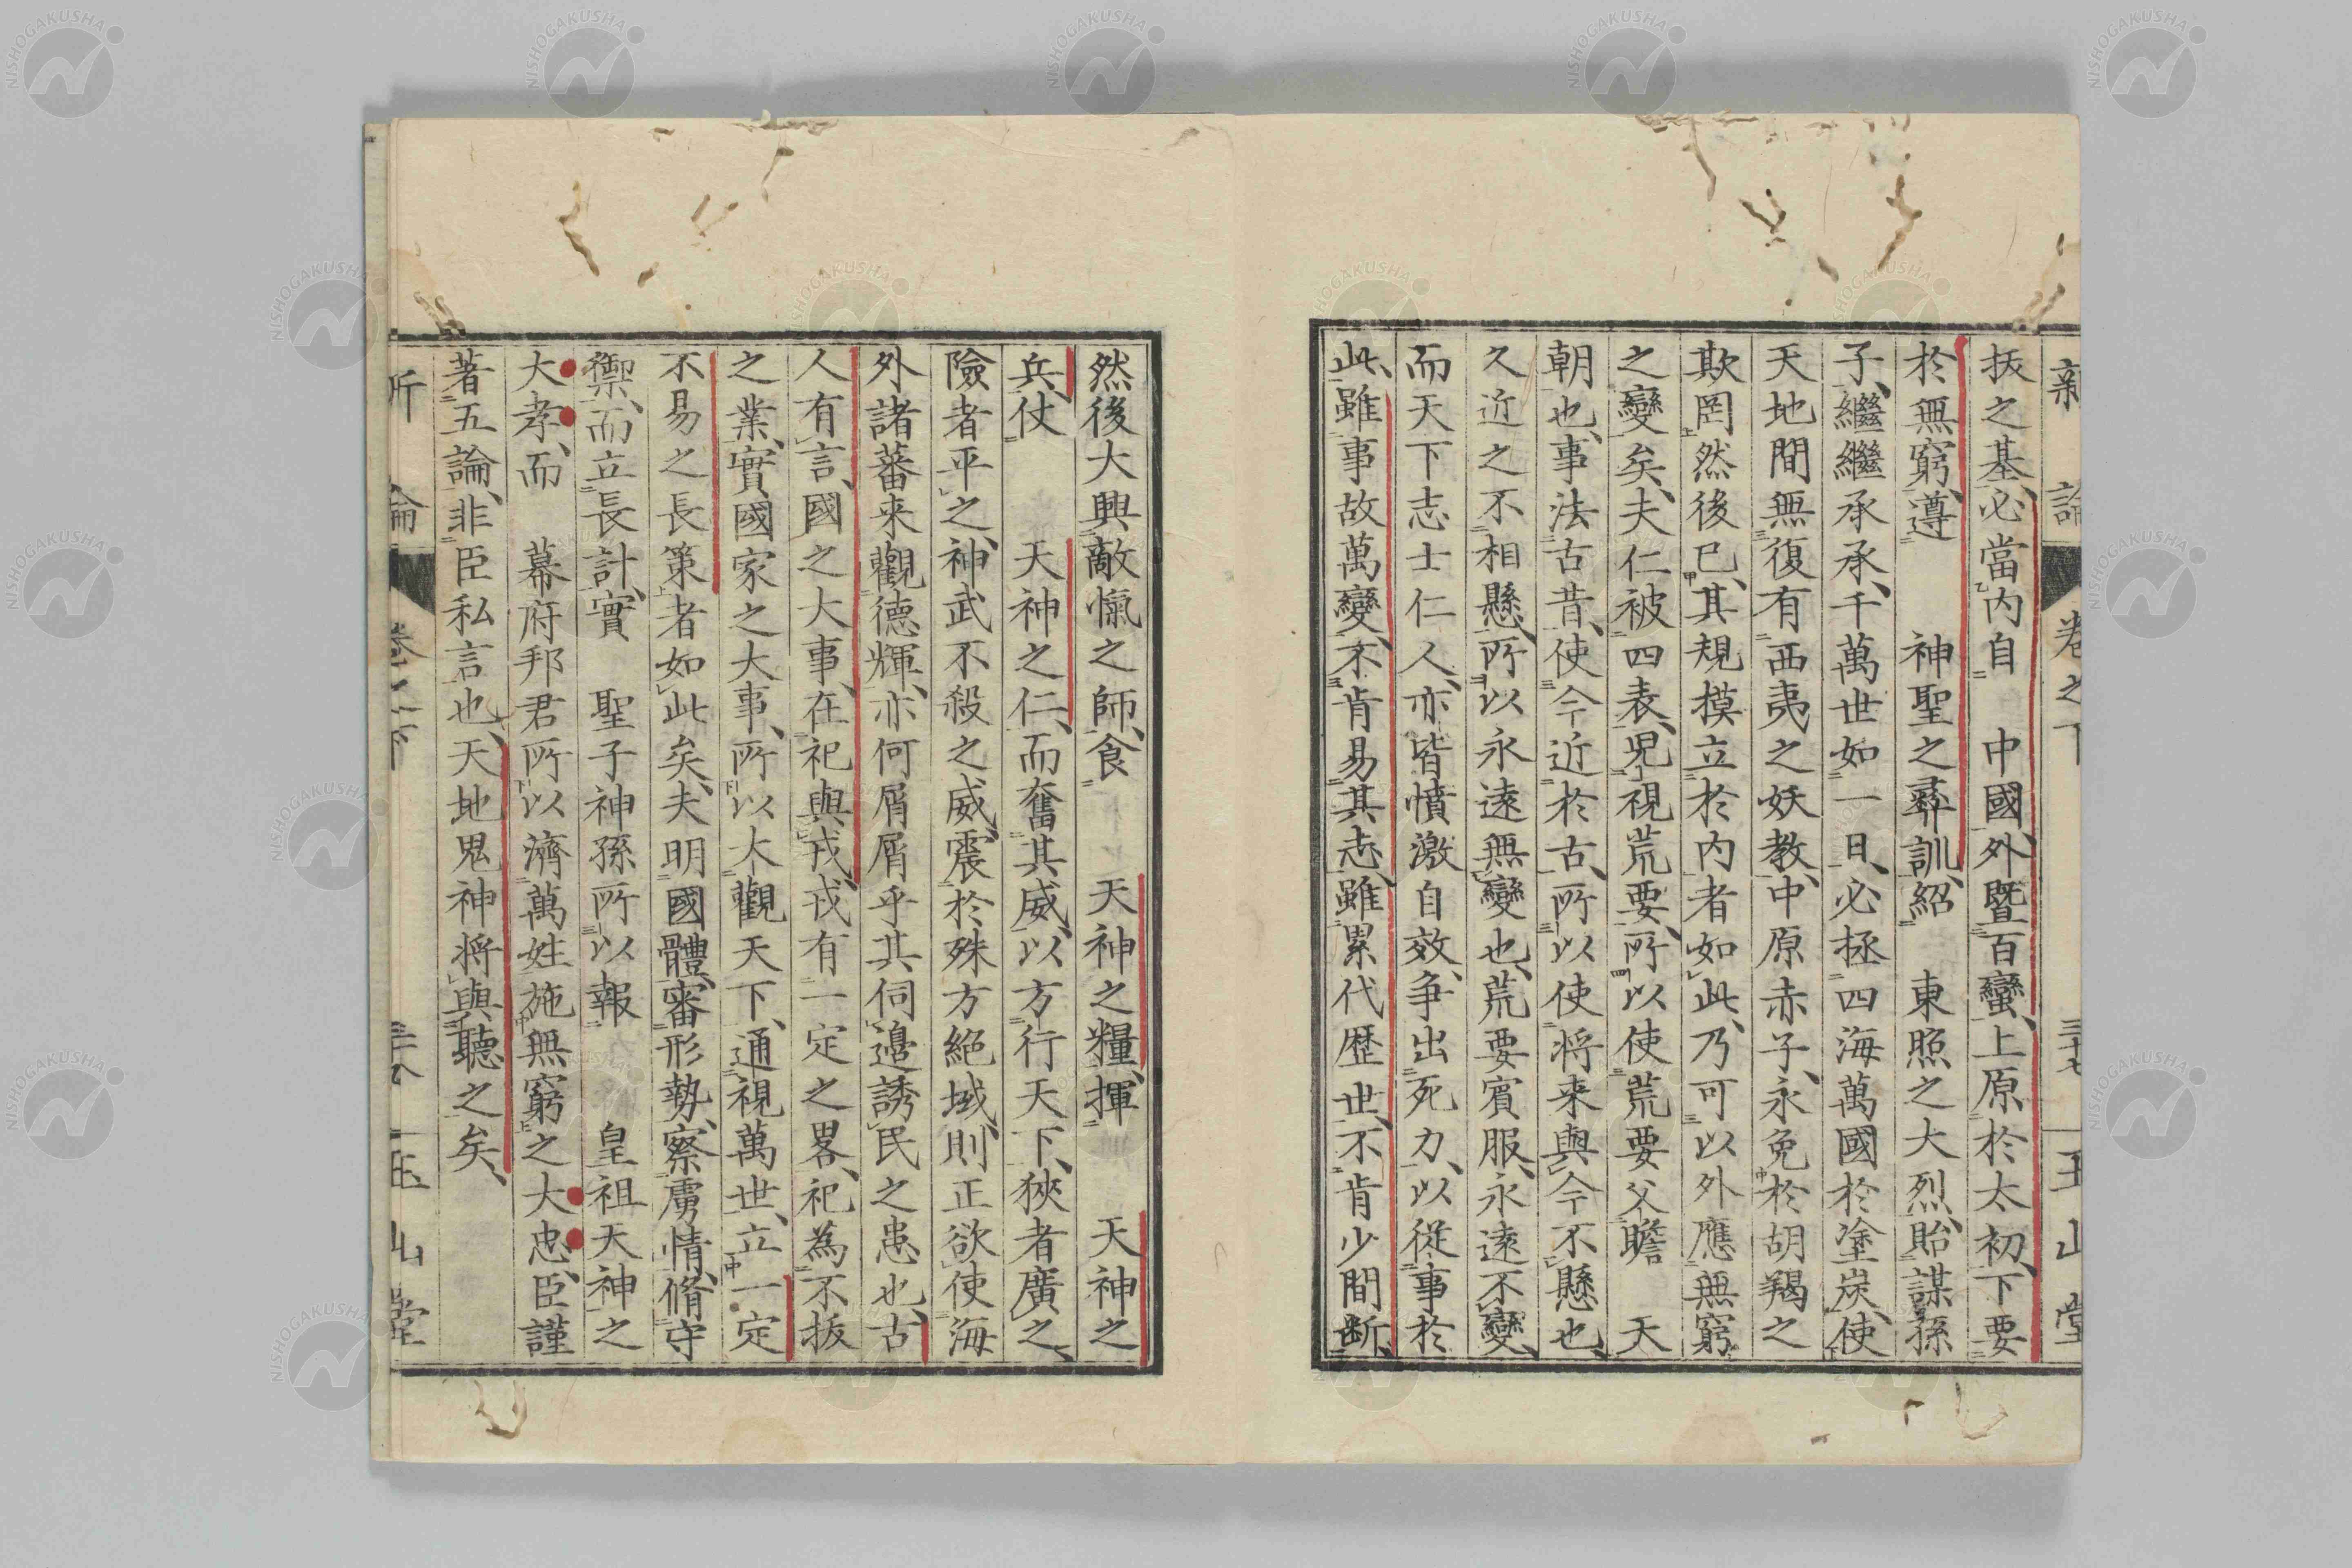 新論 卷之下 三十七 玉山堂
抜之基、必當內自 中國、外曁百蠻、上原於太初、下要
於無窮、遵 神聖之彜訓、紹 東照之大烈、貽謀孫
子、繼繼承承、千萬世如一日、必拯四海萬國於塗炭、使
天地間無復有西夷之妖教、中原赤子、永免於胡羯之
欺罔然後已、其規模立於內者如此、乃可以外應無窮
之變矣、夫仁被四表、兒視荒要、所以使荒要父瞻 天
朝也、事法古昔、使今近於古、所以使將来與今不懸也、
久近之不相懸、所以永遠無變也、荒要賓服、永遠不變、
而天下志士仁人、亦皆憤激自效、争出死力、以從事於
此、雖事故萬變、不肯易其志、雖累代歴世、不肯少間断、
然後大興敵愾之師、食 天神之糧、揮 天神之
兵、仗 天神之仁、而奮其威、以方行天下、狹者廣之、
險者平之、神武不殺之威、震於殊方絕域、則正欲使海
外諸蕃来觀德輝、亦何屑屑乎其伺邊誘民之患也、古
人有言、國之大事、在祀與戎、戎有一定之畧、祀為不抜
之業、實國家之大事、所以大觀天下、通視萬世、立一定
不易之長策者如此矣、夫明國體、審形勢、察虜情、脩守
禦、而立長計、實 聖子神孫所以報 皇祖天神之
大孝、而 幕府邦君所以濟萬姓施無窮之大忠、臣謹
著五論、非臣私言也、天地鬼神將與聽之矣、
新論 卷之下 三十八 玉山堂
NISHOGAKUSHA